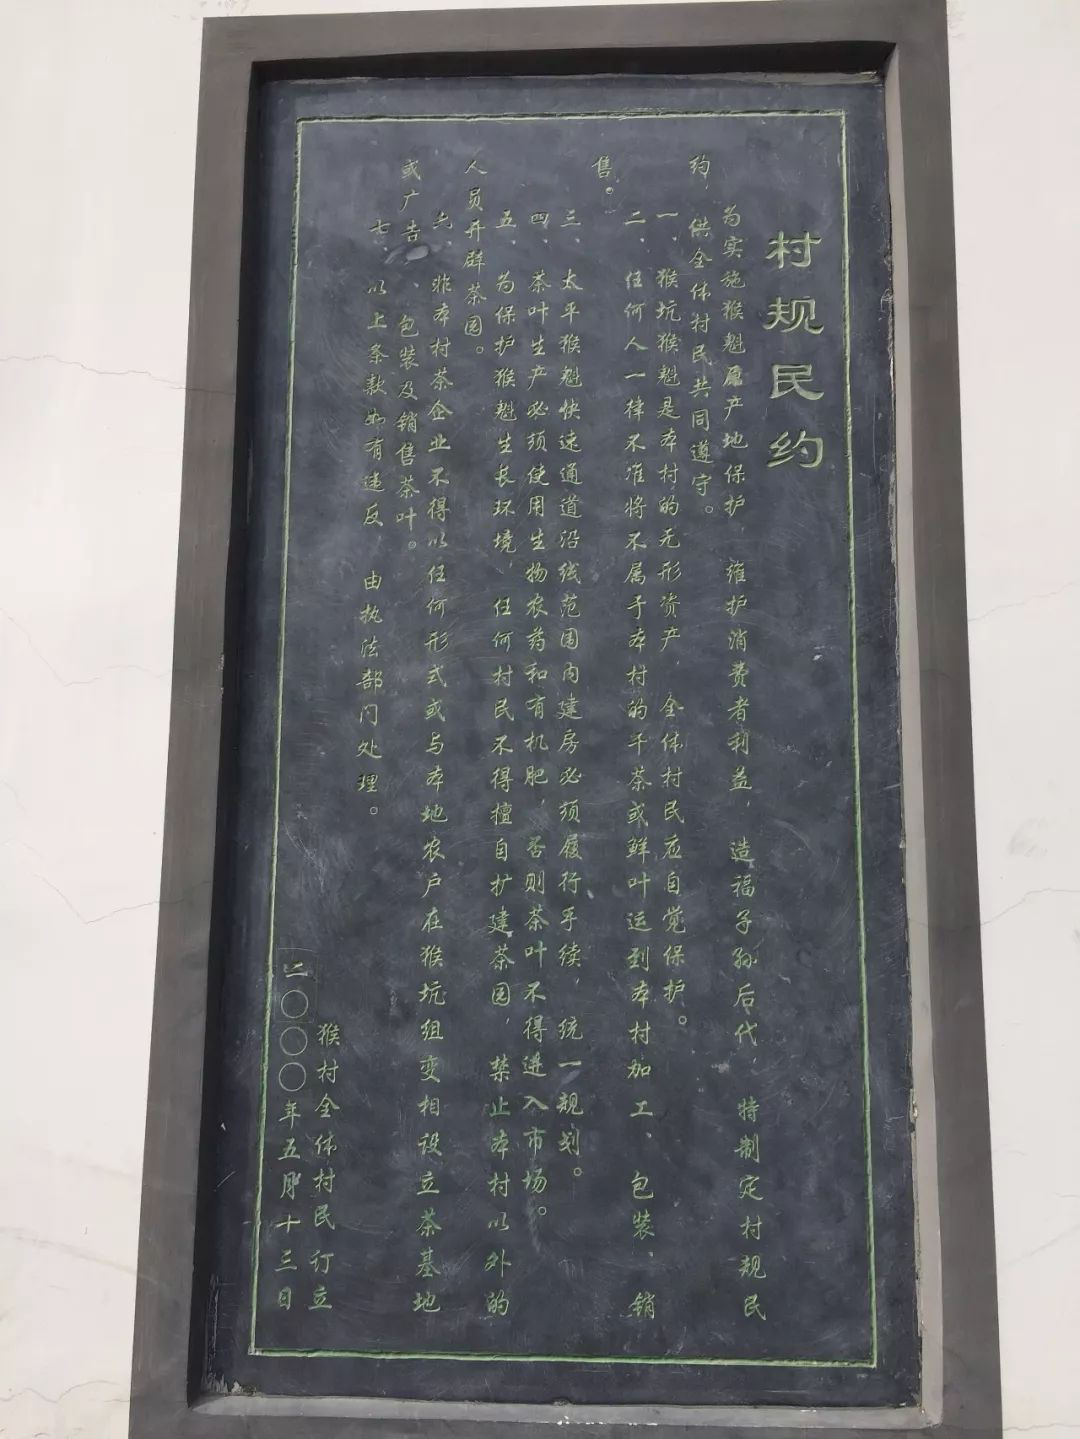 村规民约
为实施猴魁原产地保护，维护消费者利益，造福子孙后代，特制定村规民
约，供全体村民共同遵守。
一、猴坑猴魁是本村的无形资产，全体村民应自觉保护。
二、任何人一律不准将不属于本村的干茶或鲜叶运到本村加工、包装、销
售。
三、太平猴魁快速通道沿线范围内建房必须履行手续，统一规划。
四、茶叶生产必须使用生物农药和有机肥，否则茶叶不得进入市场。
五、为保护猴魁生长环境，任何村民不得擅自扩建茶园，禁止本村以外的
人员开辟茶园。
六、非本村茶企业不得以任何形式或与本地农户在猴坑组变相设立茶基地
或广告、包装及销售茶叶。
七、以上条款如有违反，由执法部门处理。
猴村全体村民订立
二〇〇〇年五月十三日